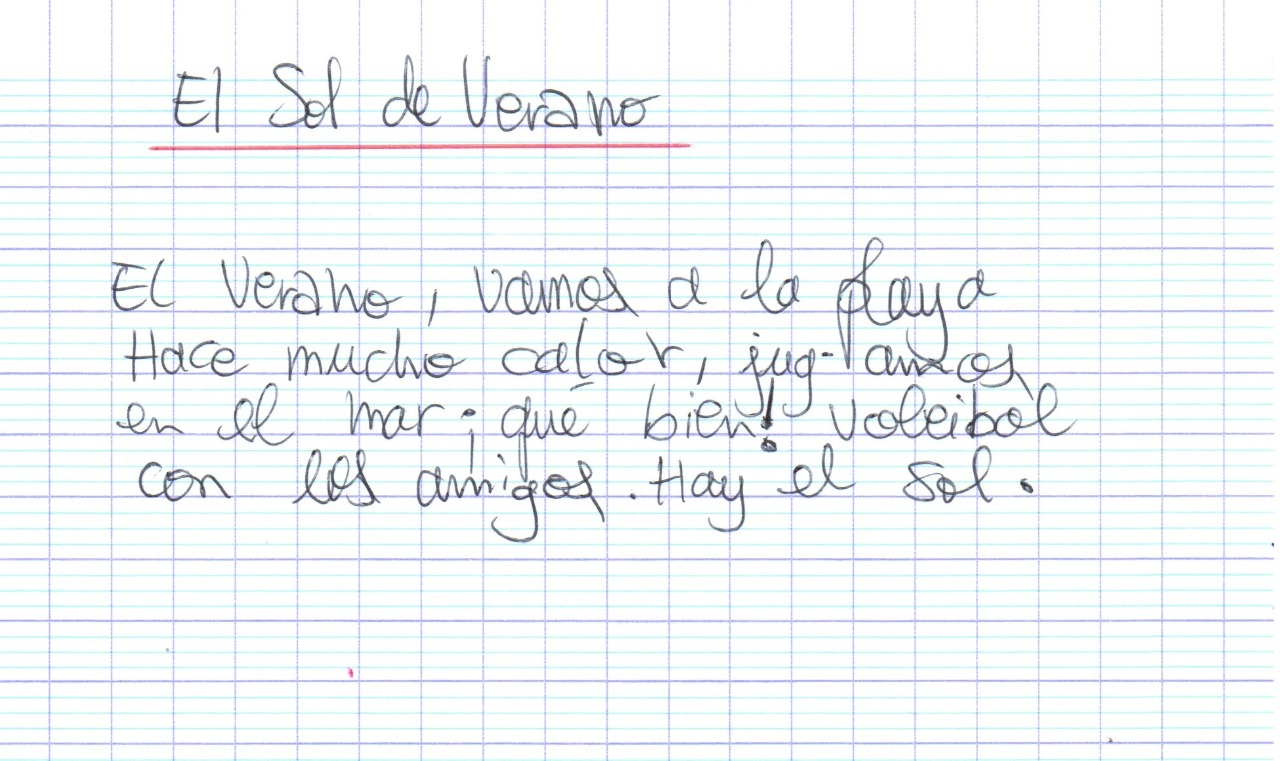 El Sol de Verano
El Verano, vamos a la playa
Hace mucho calor, jug-amos
en el mar ¡ que bien! voleibol
con los amigos. Hay el sol.